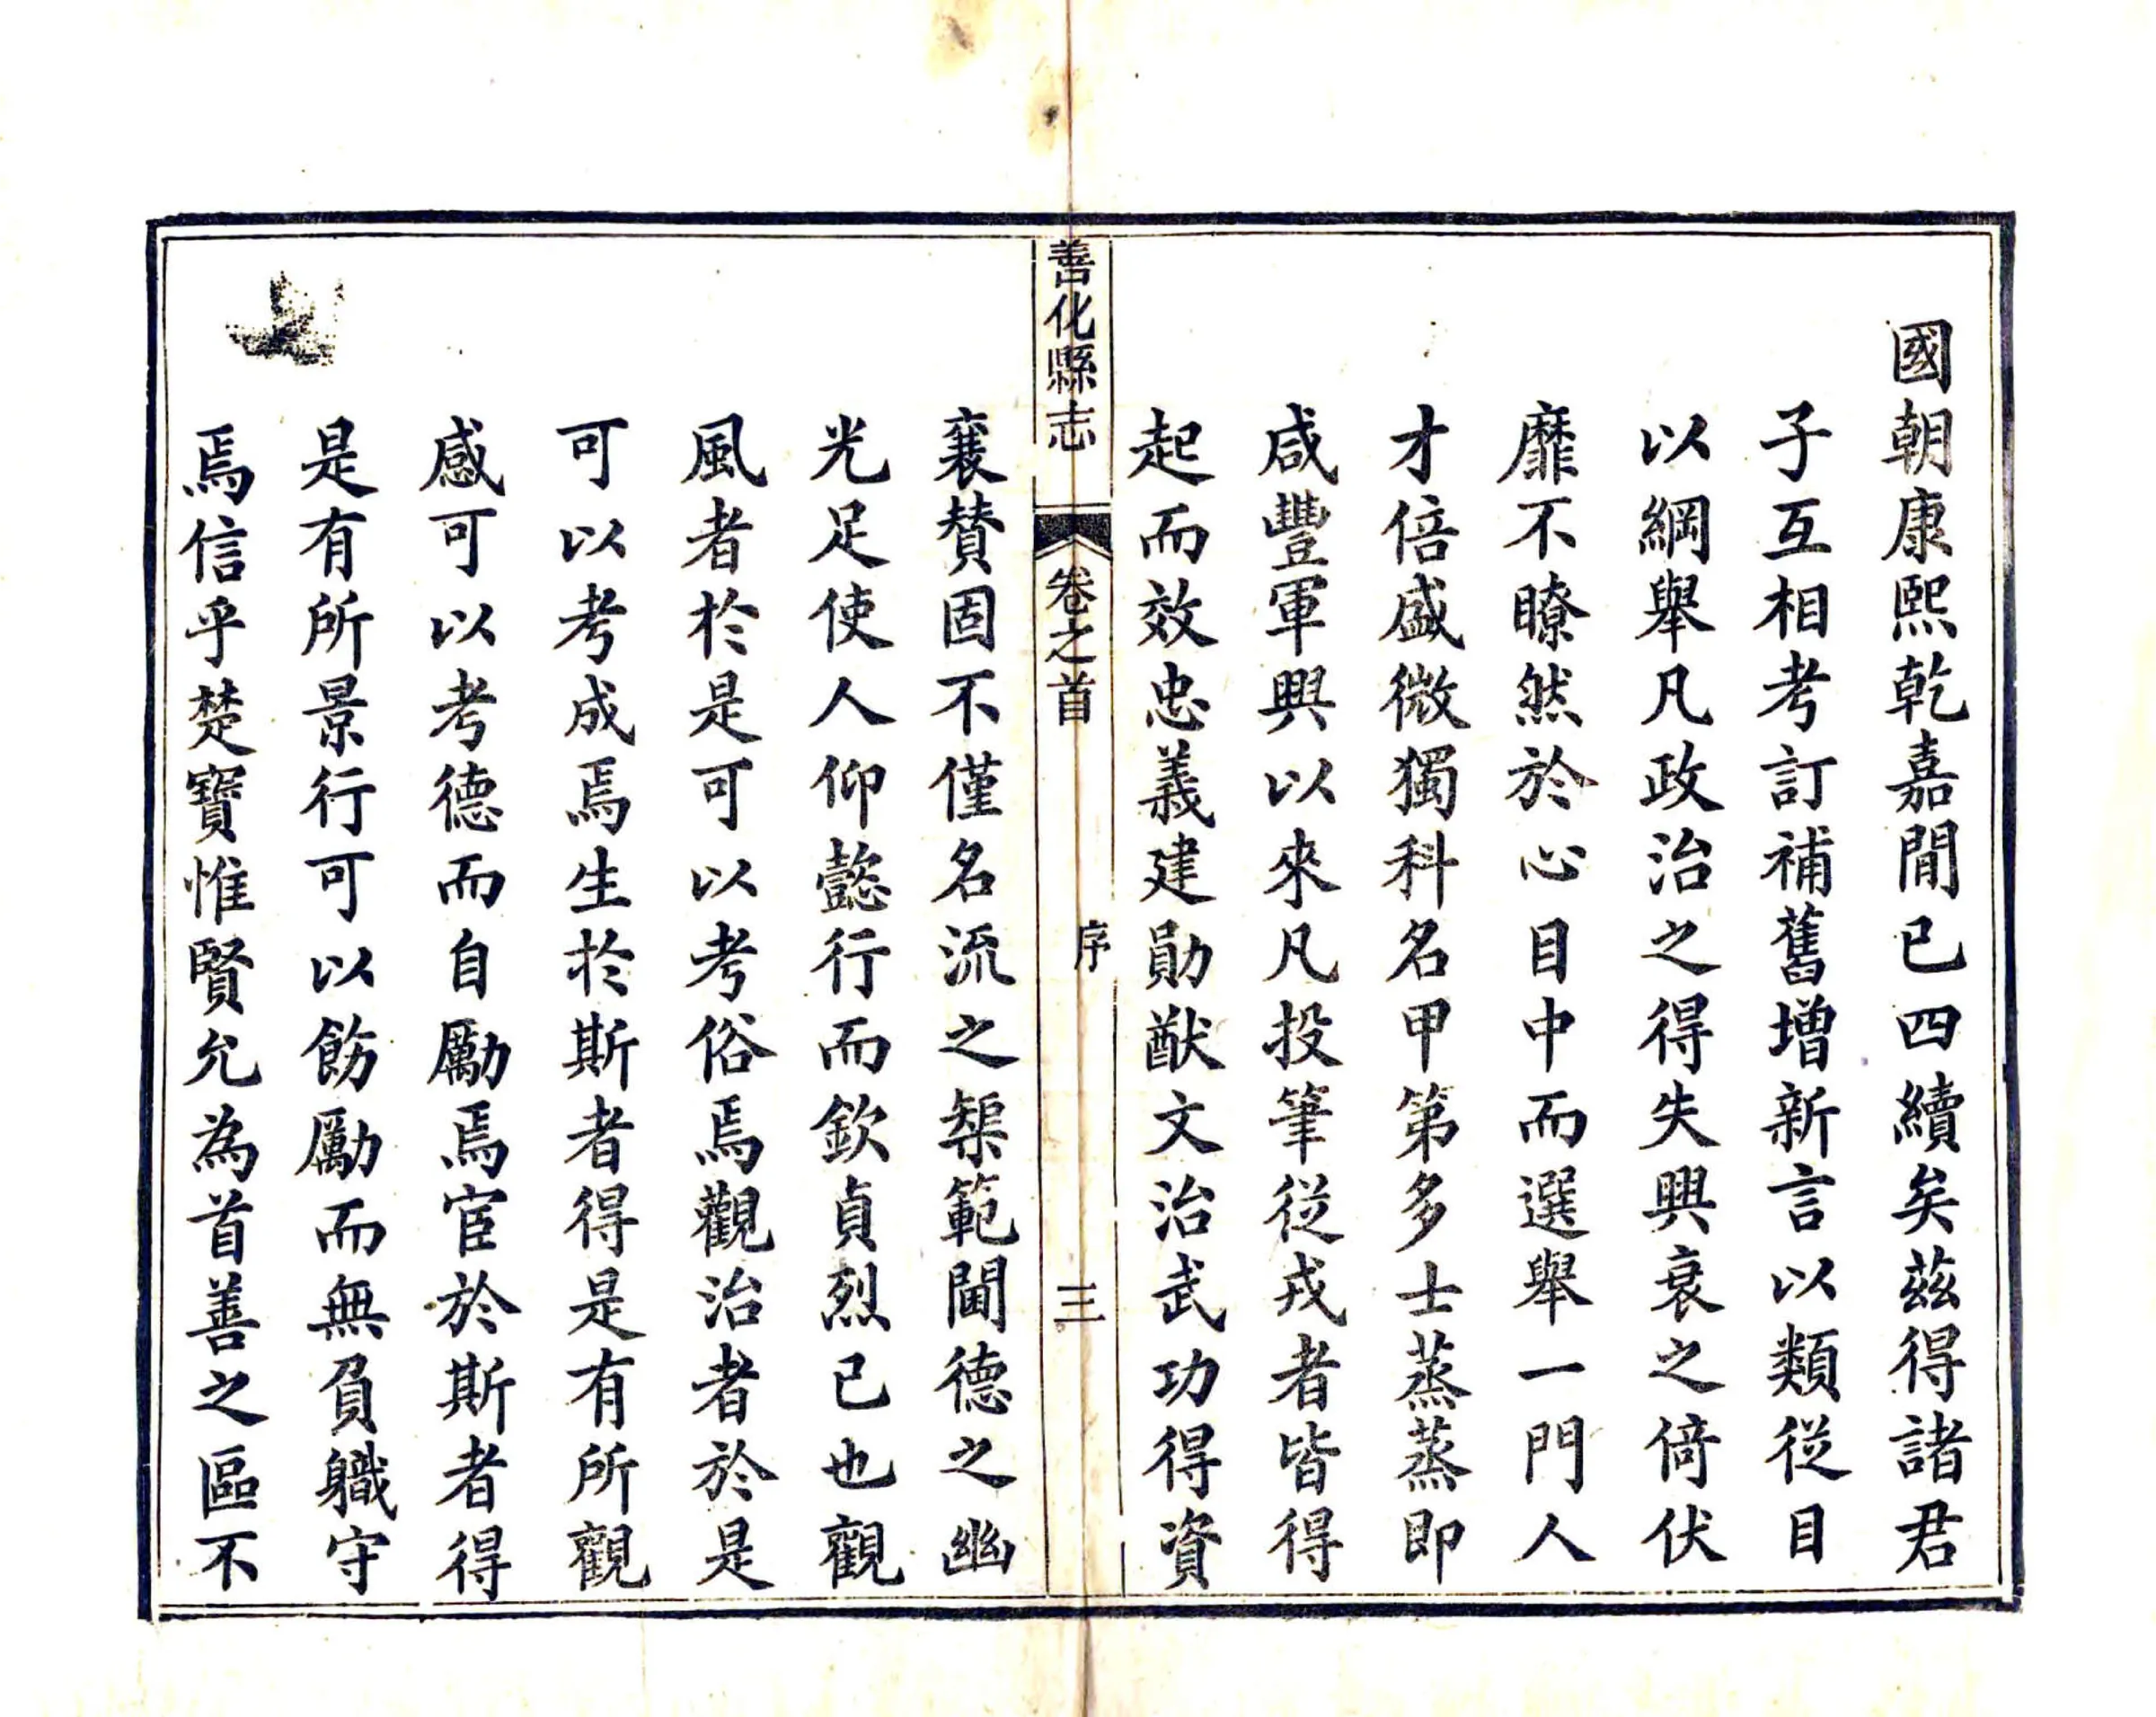 國朝康熙乾嘉閒已四續矣茲得諸君
子互相考訂補舊增新言以類從目
以綱舉凡政治之得失興衰之倚伏
靡不瞭然於心目中而選舉一門人
才倍盛微獨科名甲第多士蒸蒸即
咸豐軍興以來凡投筆從戎者皆得
起而效忠義建勛猷文治武功得資
善化縣志 卷之首 序 三
襄贊固不僅名流之榘範閫德之幽
光足使人仰懿行而欽貞烈已也觀
風者於是可以考俗焉觀治者於是
可以考成焉生於斯者得是有所觀
感可以考德而自勵焉宦於斯者得
是有所景行可以飭勵而無負職守
焉信乎楚寶惟賢允為首善之區不